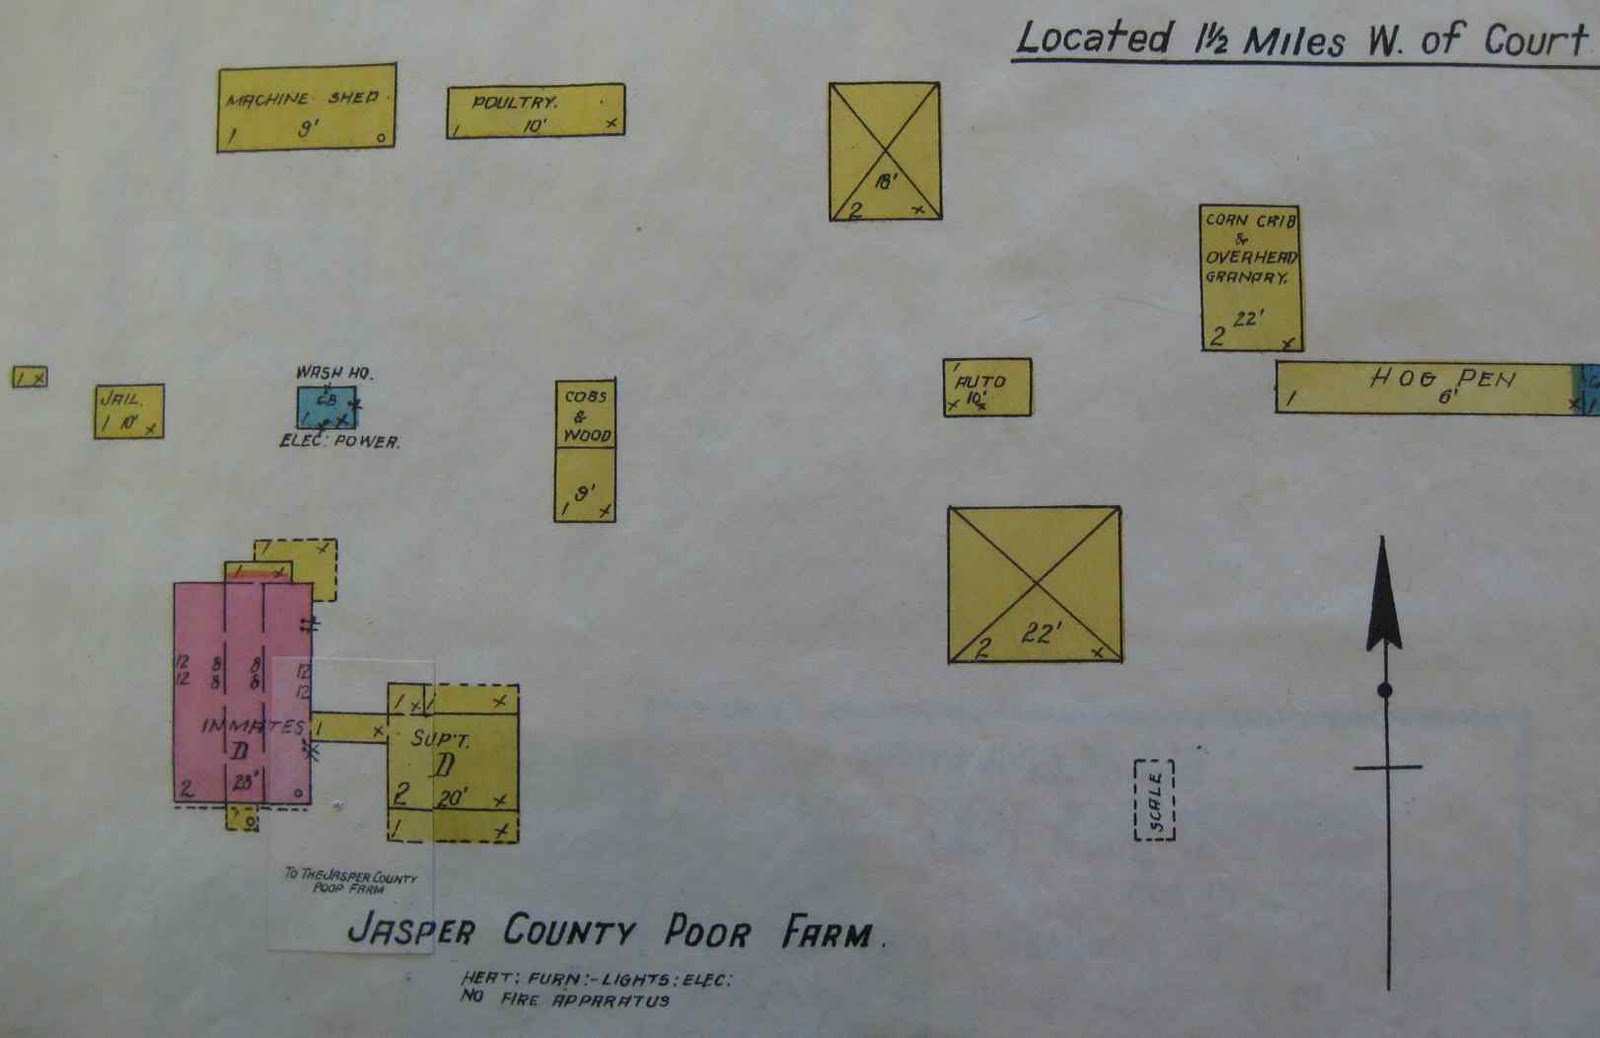 Located 1½ Miles W. of Court
MACHINE SHED
1 9' o
POULTRY.
1 10' x
18'
2 x
CORN CRIB
&
OVERHEAD
GRANARY.
22'
2 x
1 x
JAIL.
1 10' x
WASH HO.
CB
1 x
ELEC: POWER.
COBS
&
WOOD
9'
1 x
1
AUTO
10'
x x
HOG PEN
1 6' x
1
1 x
1 x
12 8 8 12
12 8 8 12
INMATES
D
2 23' o
1 x
1 x 1 x
SUP'T.
D
2 20' x
1 x
22'
2 x
SCALE
TO THE JASPER COUNTY
POOP FARM
JASPER COUNTY POOR FARM.
HEAT: FURN:-LIGHTS: ELEC:
NO FIRE APPARATUS